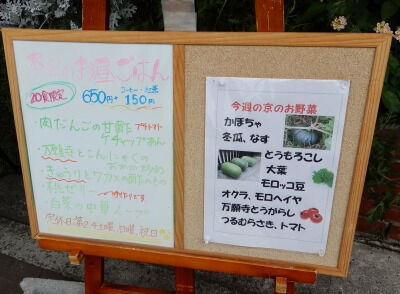 お昼ごはん
20食限定
650円+
コーヒー・紅茶
150円
・肉だんごの甘酢
ケチャップあん
・万願寺とこんにゃくの
・きゅうりとワカメの酢のもの
・桃ゼリー
・白菜の中華スープ
定休日 第2.4土曜、日曜、祝日
今週の京のお野菜
かぼちゃ
冬瓜、なす
とうもろこし
大葉
モロッコ豆
オクラ、モロヘイヤ
万願寺とうがらし
つるむらさき、トマト